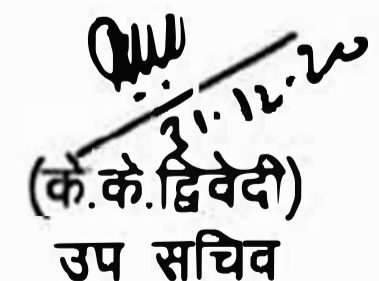 31.12.20
(के.के.द्विवेदी)
उप सचिव